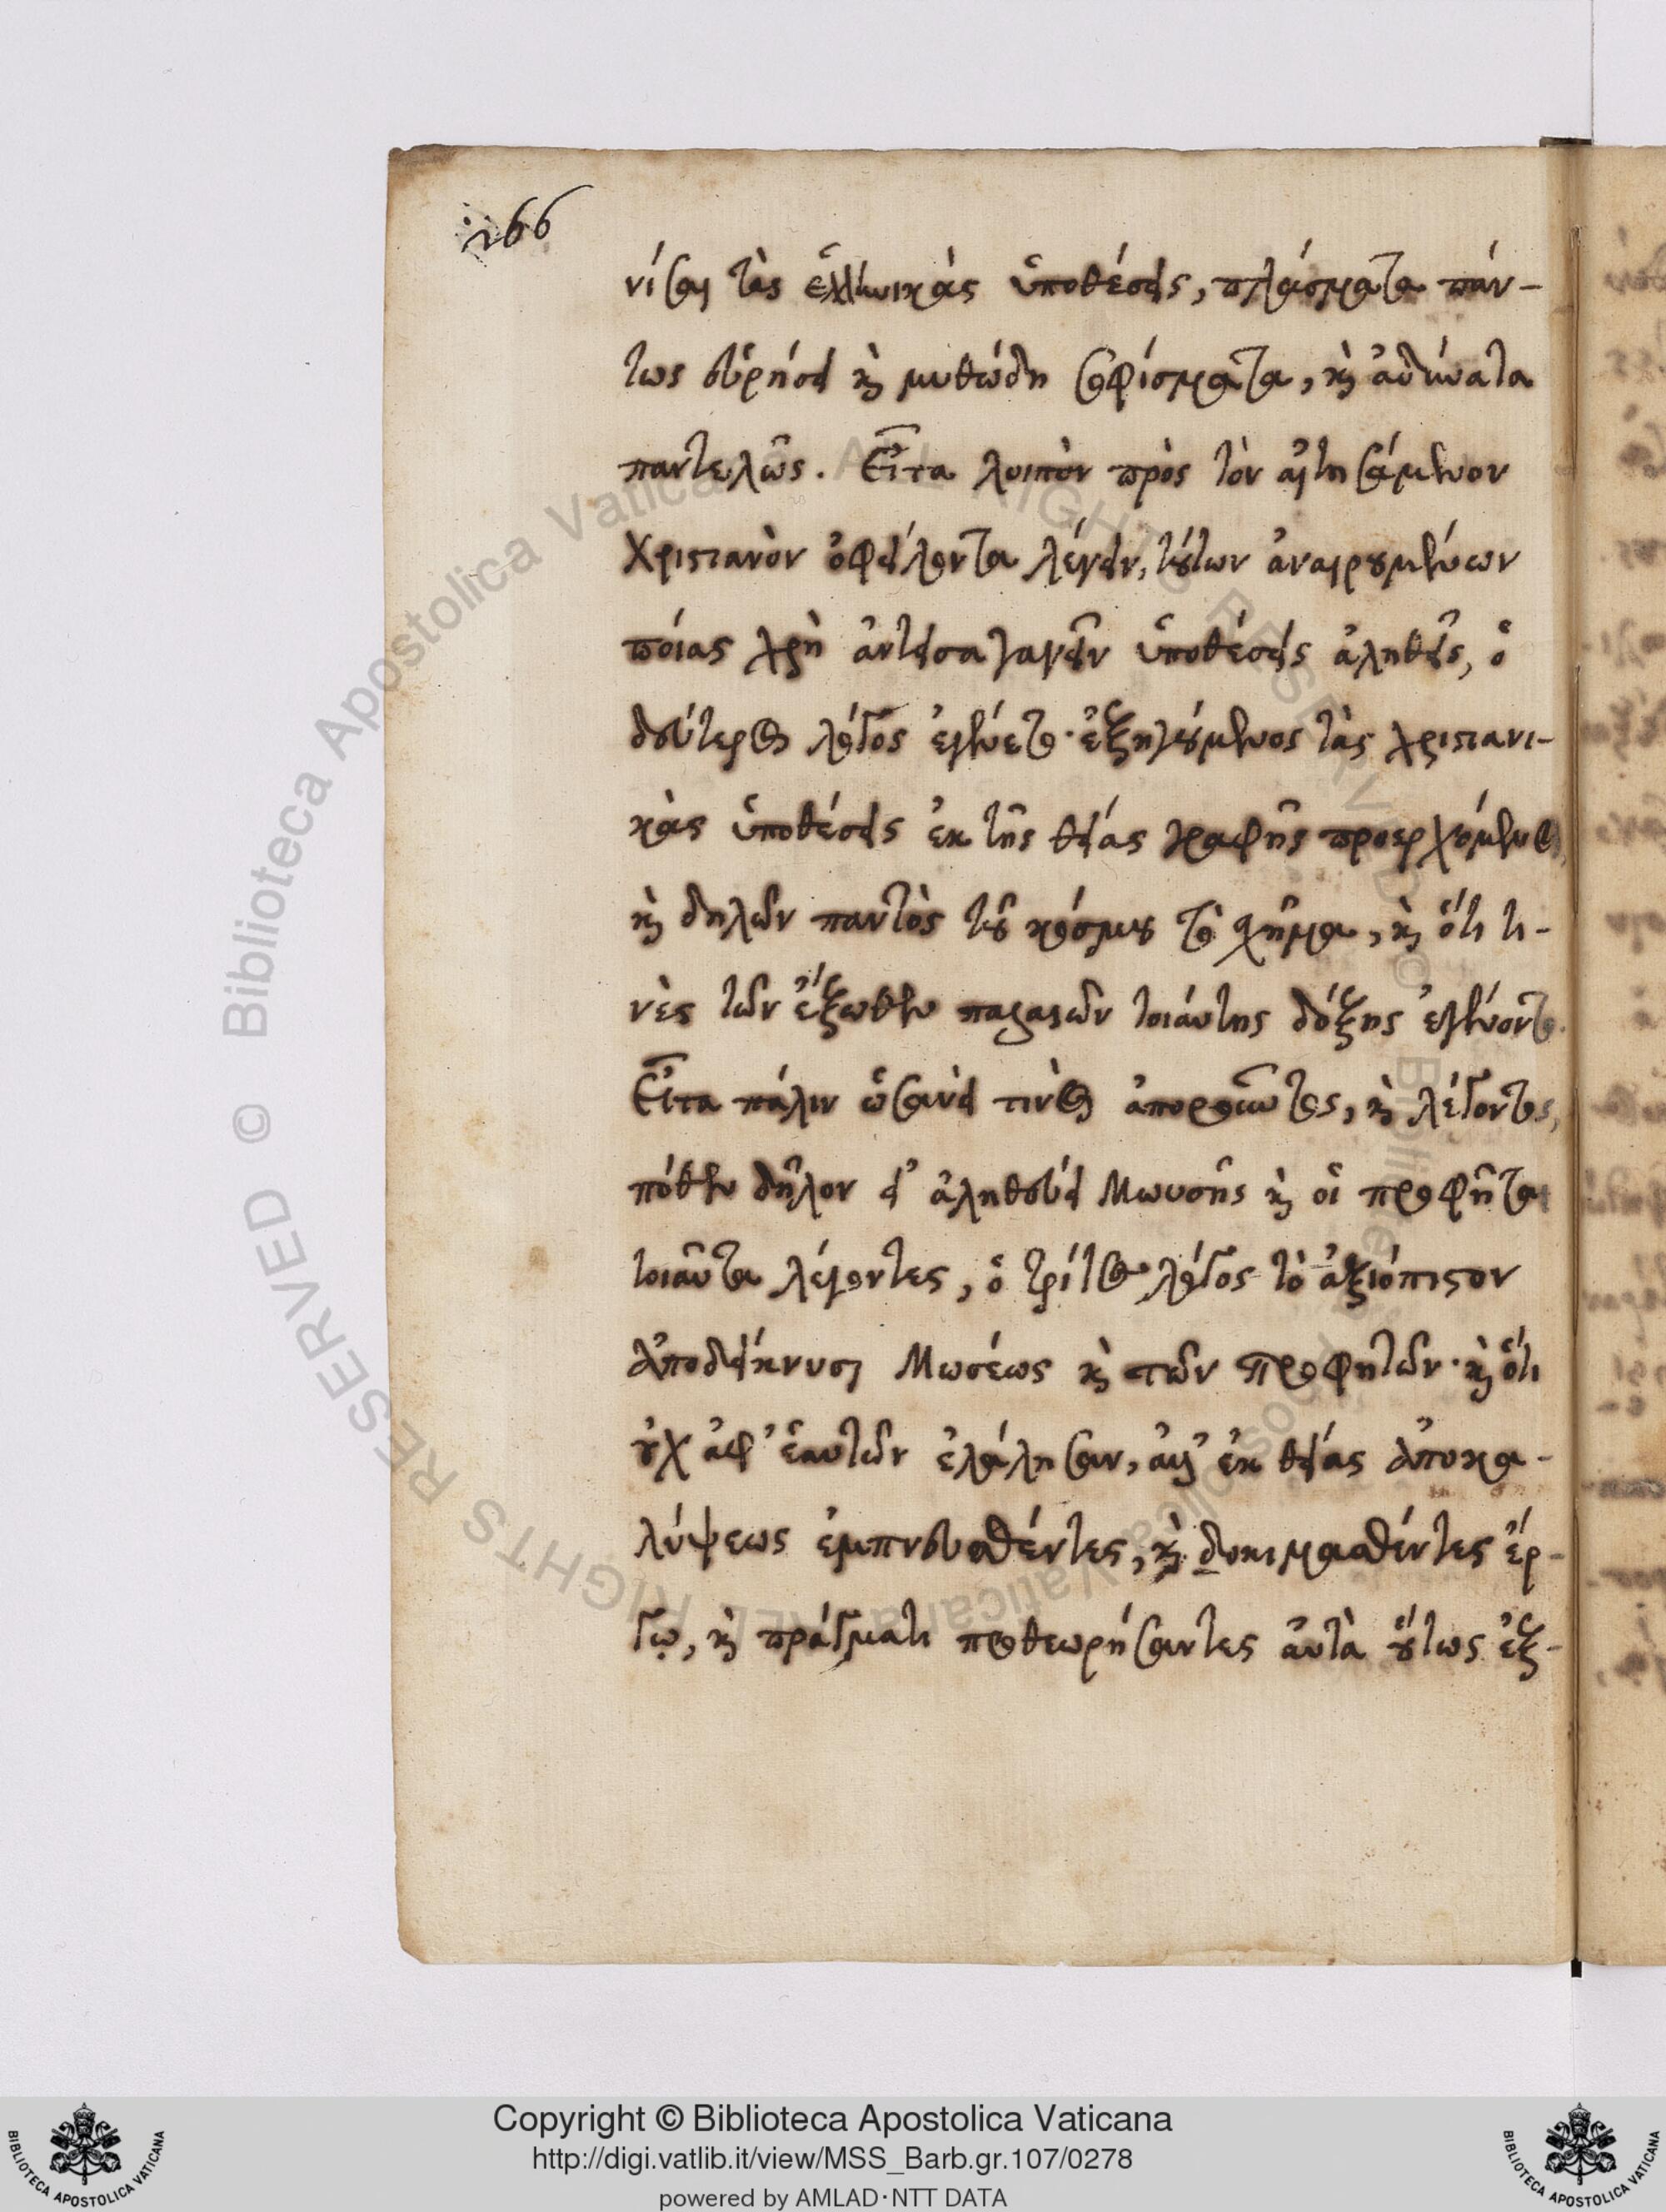 266
νίσαι τὰς ἑλληνικὰς ὑποθέσεις, πλάσματα πάν-
τως εὑρήσει κὶ μυθώδη σοφίσματα, κὶ ἀδύνατα
παντελῶς. Εἶτα λοιπὸν πρὸς τὸν αἰτησάμενον
Χριστιανὸν ὀφείλοντα λέγειν, τούτων ἀναιρουμένων
ποίας χρὴ ἀντεισαγαγεῖν ὑποθέσεις ἀληθεῖς, ὁ
δεύτερος λόγος ἐγένετο· ἐξηγούμενος τὰς χριστιανι-
κὰς ὑποθέσεις ἐκ τῆς θείας γραφῆς προερχόμενος,
κὶ δηλῶν παντὸς τοῦ κόσμου τὸ σχῆμα, κὶ ὅτι τι-
νὲς τῶν ἔξωθεν παλαιῶν τοιαύτης δόξης ἐγένοντο.
Εἶτα πάλιν ὡσανεί τινος ἀποροῦντες, κὶ λέγοντες,
πόθεν δῆλον εἰ ἀληθεύει Μωυσῆς κὶ οἱ προφῆται
τοιαῦτα λέγοντες, ὁ τρίτος λόγος τὸ ἀξιόπιστον
ἀποδείκνυσι Μωσέως κὶ τῶν προφητῶν· κὶ ὅτι
οὐχ ἀφ' ἑαυτῶν ἐλάλησαν, ἀλλ' ἐκ θείας ἀποκα-
λύψεως ἐμπνευσθέντες, κὶ δοκιμασθέντες ἔρ-
γῳ, κὶ πράγματι προθεωρήσαντες αὐτὰ οὕτως ἐξ-
Copyright © Biblioteca Apostolica Vaticana
http://digi.vatlib.it/view/MSS_Barb.gr.107/0278
powered by AMLAD·NTT DATA
BIBLIOTECA APOSTOLICA VATICANA
BIBLIOTECA APOSTOLICA VATICANA
© Biblioteca Apostolica Vaticana ALL RIGHTS RESERVED